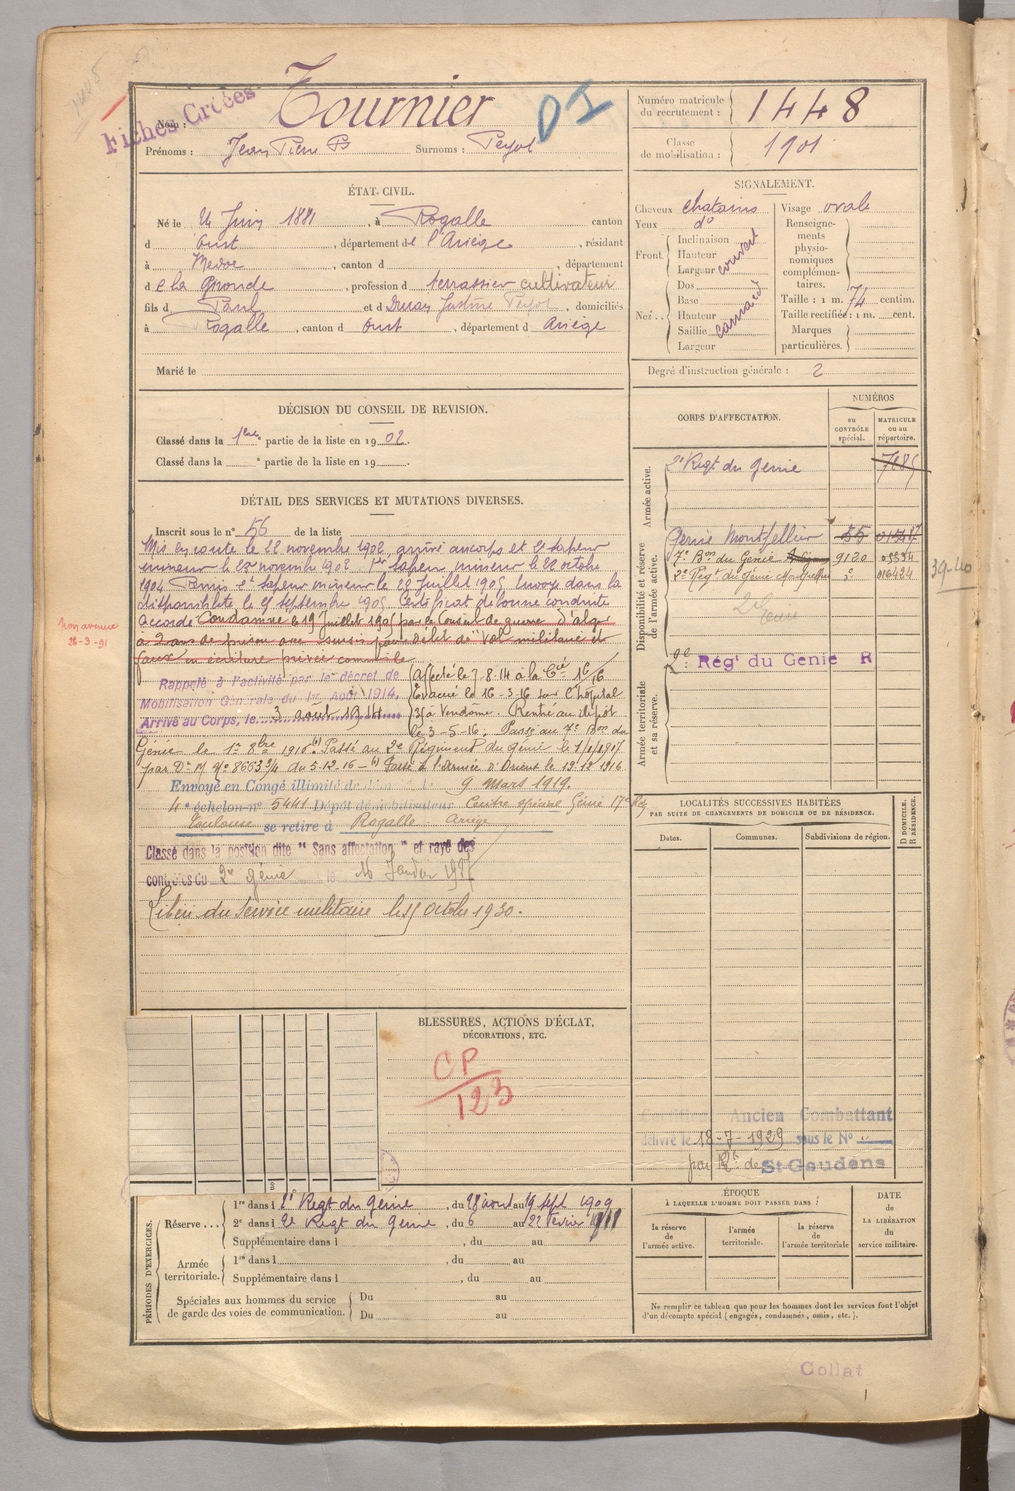 Fiches Créées
Nom : Tournier
DI
Prénoms : Jean Pierre
Surnoms : Peyot
Numéro matricule du recrutement : 1448
Classe de mobilisation : 1901
ÉTAT CIVIL.
Né le 24 Juin 1881, à Rogalle canton
d Oust, département de l'Ariège, résidant
à Medoc, canton d , département
de la Gironde, profession d terrassier cultivateur
fils d Paul et d Duran Justine Peyot, domiciliés
à Rogalle, canton d Oust, département d Ariège
Marié le
SIGNALEMENT.
Cheveux chatains
Yeux d°
Front
Inclinaison
Hauteur
Largeur
couvert
Nez
Dos
Base
Hauteur
Saillie
Largeur
Visage ovale
Renseignements physionomiques complémentaires.
Taille : 1 m. 74 centim.
Taille rectifiée : 1 m. cent.
Marques particulières.
Degré d'instruction générale : 2
DÉCISION DU CONSEIL DE REVISION.
Classé dans la 1ère partie de la liste en 1902.
Classé dans la ° partie de la liste en 19 .
CORPS D'AFFECTATION.
NUMÉROS
au CONTRÔLE spécial.
MATRICULE ou au répertoire.
Armée active.
2e Regt du Génie
Disponibilité et réserve de l'armée active.
Génie Montpellier 55
7e Bon du Génie 9120
2e Regt du Génie Montpellier
39-40
Armée territoriale et sa réserve.
Régt du Génie R
DÉTAIL DES SERVICES ET MUTATIONS DIVERSES.
Inscrit sous le n° 56 de la liste
Mis en route le 22 novembre 1902, arrivé au corps et 2e sapeur
mineur le 22 novembre 1902. 1er sapeur mineur le 22 octobre
1904 Remis 2e sapeur mineur le 28 Juillet 1905 Envoyé dans la
disponibilité le 9 septembre 1905 Certificat de bonne conduite
accordé Condamné le 19 Juillet 1905 par le Conseil de guerre d'Alger
à 2 ans de prison avec sursis pour délit de "Vol militaire et
faux en écriture privée
non avenue
26-3-91
Rappelé à l'activité par le décret de
Mobilisation Générale du 1er Août 1914.
Arrivé au Corps, le 3 août 1914
Affecté le 7-8-14 à la Cie 16/16
Evacué le 16-3-16 sur l'hôpital
à Vendôme. Rentré au dépôt
le 3-5-16. Passé au 7e Bon du
Génie le 1er 8bre 1916. Passé au 2e Régiment du génie le 1/1/1917
par Dn M No 8663 3/4 du 5-12-16 Passé à l'armée d'Orient le 19-12-1916
Envoyé en Congé illimité 9 Mars 1919.
4e échelon n° 5441 Dépôt démobilisateur Centre spécial Génie 17e Rég
Toulouse se retire à Rogalle Ariège
Classé dans la position dite "Sans affectation" et rayé des
contrôles du 2e génie le 16 Janvier 1927
Libéré du service militaire le 15 Octobre 1930.
LOCALITÉS SUCCESSIVES HABITÉES
PAR SUITE DE CHANGEMENTS DE DOMICILE OU DE RÉSIDENCE.
Dates.
Communes.
Subdivisions de région.
D DOMICILE.
R RÉSIDENCE.
BLESSURES, ACTIONS D'ÉCLAT,
DÉCORATIONS, ETC.
CP
123
Ancien Combattant
délivré le 18-7-1929 sous le N°
par de St Gaudens
PÉRIODES D'EXERCICES.
Réserve
1re dans l 2e Regt du génie, du 28 août au 19 sept 1909
2e dans l 2e Regt du génie, du 6 au 22 février 1911
Supplémentaire dans l , du au
Armée territoriale.
1re dans l , du au
Supplémentaire dans l , du au
Spéciales aux hommes du service de garde des voies de communication.
Du au
Du au
ÉPOQUE
À LAQUELLE L'HOMME DOIT PASSER DANS :
la réserve de l'armée active.
l'armée territoriale.
la réserve de l'armée territoriale
DATE DE LA LIBÉRATION du service militaire.
Ne remplir ce tableau que pour les hommes dont les services font l'objet
d'un décompte spécial (engagés, condamnés, omis, etc.).
Collat